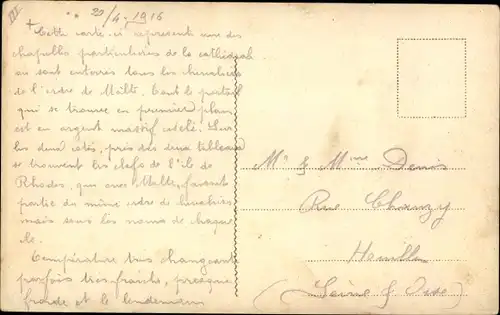 III
20/4-1916
+ Cette carte-ci représente une des
chapelles particulières de la cathédrale
où sont enterrés tous les chevaliers
de l'ordre de Malte. Tout le portail
qui se trouve en premier plan
est en argent massif ciselé. Sur
les deux côtés, près des deux tableaux
se trouvent les clefs de l'île de
Rhodes, qui avec Malte, faisait
partie du même ordre de chevaliers
mais sous les noms de chaque
île.
Température très changeante
parfois très fraîche, presque
froide et le lendemain
Mr & Mme Denis
Rue Chanzy
Houilles
(Seine & Oise)